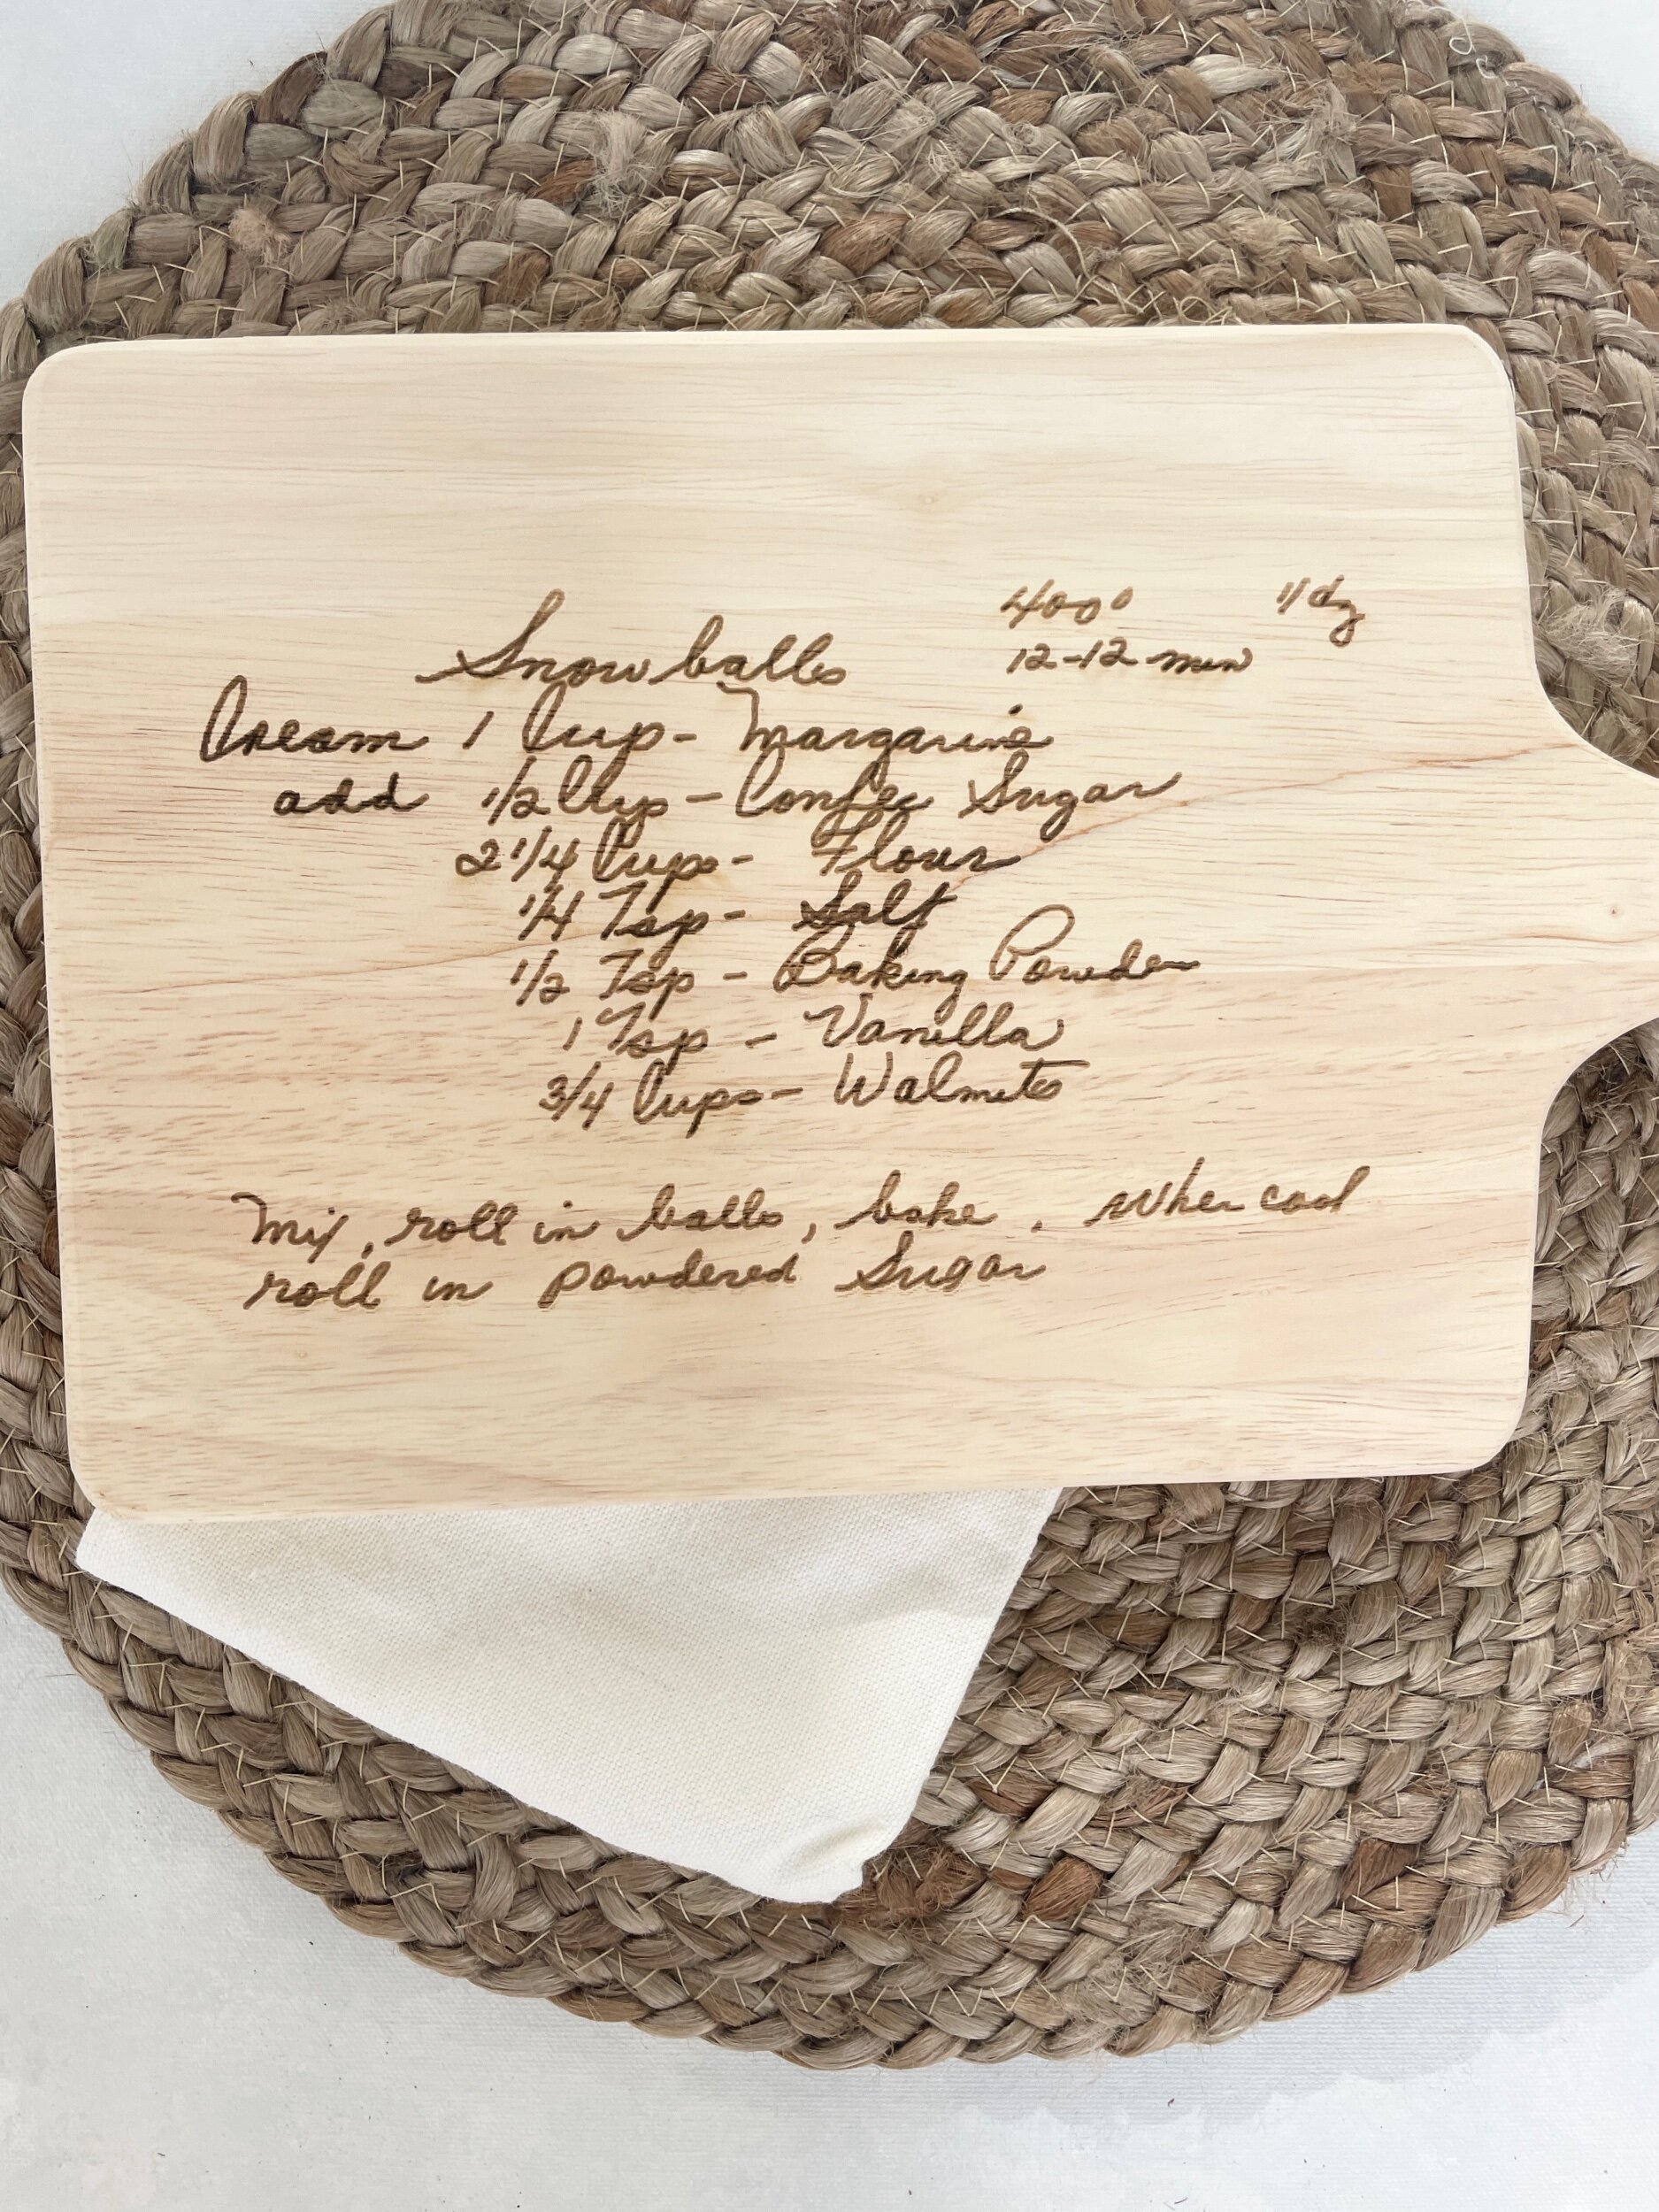 Snowballs 400° 11 dz
12-12 min
Cream 1 Cup - Margarine
add 1/2 Cup - Confec Sugar
2 1/4 Cups - Flour
1/4 Tsp - Salt
1/2 Tsp - Baking Powder
1 Tsp - Vanilla
3/4 Cups - Walnuts
Mix, roll in balls, bake. When cool
roll in powdered Sugar